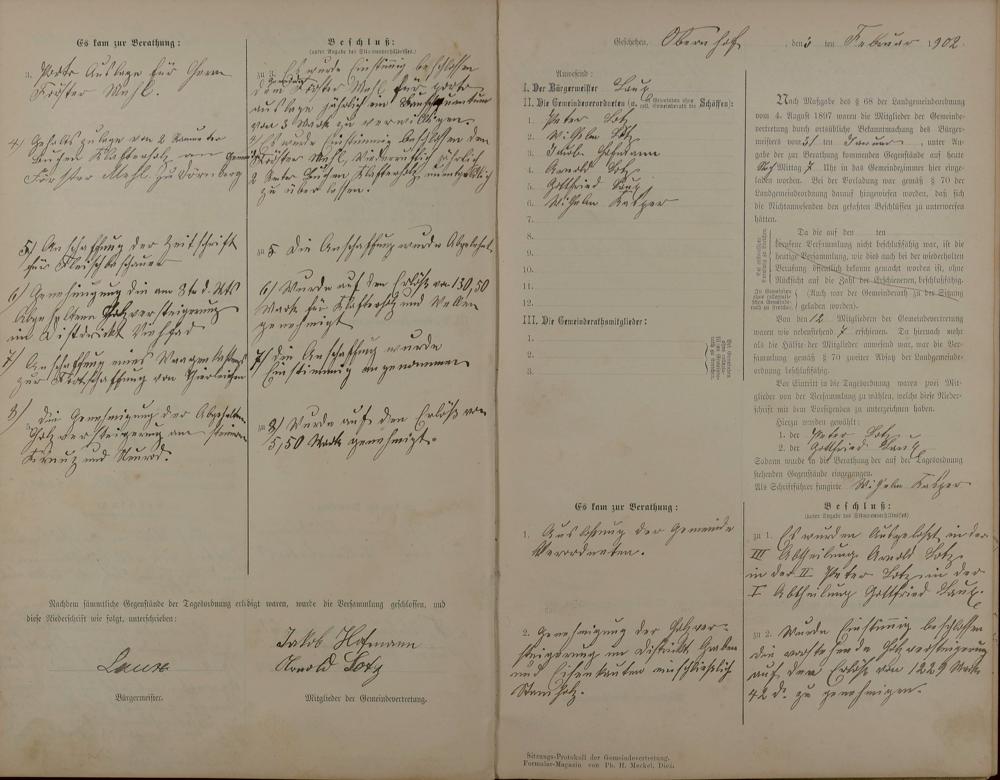 Es kam zur Berathung:
3. Porto Auslage für Herrn
Förster Mehl.
4) Gehaltszulage von 2 Raummeter
buchen Klafterholz an Gemeinde
Förster Mehl zu Dörnberg
5) Anschaffung der Zeitschrift
für Fleischbeschauer
6) Genehmigung die am 3ten d. Mts
Abgehaltene Holzversteigerung
im Distrikt Viehpfad
7) Anschaffung eines Waagenkastens
zur Fortschaffung von Thierleichen
8) Die Genehmigung der Abgehaltenen
Holzversteigerung am steinern
Kreuz und Neurod.
Beschluß:
(unter Angabe des Stimmenverhältnisses.)
zu 3. Es wurde Einstimig beschlossen
dem Förster Mehl für porto
auslage jährlich ein Bauschquantum
von 3 Mark zu verwilligen.
4) Es wurde Einstimmig beschlossen den
Förster Mehl, Wiederruflich jährlich
2 Meter buchen Klafterholz, unentgeltlich
zu über lossen.
zu 5. Die Anschaffung wurde Abgelehnt.
6) Wurde auf den Erlöß von 130,50
Mark für Klafterholz und Wellen
genehmigt
7) Die Anschaffung wurde
Einstimmig angenommen
zu 8) Wurde auf den Erlöß von
5,50 Mark genehmigt.
Nachdem sämmtliche Gegenstände der Tagesordnung erledigt waren, wurde die Versammlung geschlossen, und
diese Niederschrift wie folgt, unterschrieben:
Jakob Hofmann
Laux
Arnold Lotz
Bürgermeister.
Mitglieder der Gemeindevertretung.
Geschehen, Obernhof, den 5 ten Februar 1902.
Anwesend:
I. Der Bürgermeister Laux
II. Die Gemeindeverordneten (u. Schöffen):
1. Peter Lotz
2. Wilhelm Lotz
3. Jacob Hofmann
4. Arnold Lotz
5. Gottfried Laux
6. Wilhelm Kasper
7.
8.
9.
10.
11.
12.
III. Die Gemeinderathsmitglieder:
1.
2.
3.
Nach Maßgabe des § 68 der Landgemeindeordnung
vom 4. August 1897 waren die Mitglieder der Gemeinde-
vertretung durch ortsübliche Bekanntmachung des Bürger-
meisters vom 31 ten Januar, unter An-
gabe der zur Berathung kommenden Gegenstände auf heute
Mittag 7 Uhr in das Gemeindezimmer hier einge-
laden worden. Bei der Vorladung war gemäß § 70 der
Landgemeindeordnung darauf hingewiesen worden, daß sich
die Nichtanwesenden den gefaßten Beschlüssen zu unterwerfen
hätten.
Da die auf den ten
berufene Versammlung nicht beschlußfähig war, ist die
heutige Versammlung, wie dies auch bei der wiederholten
Berufung öffentlich bekannt gemacht worden ist, ohne
Rücksicht auf die Zahl der Erschienenen, beschlußfähig.
(Auch war der Gemeinderath zu der Sitzung
geladen worden).
Von den 12 Mitgliedern der Gemeindevertretung
waren wie nebenstehend 7 erschienen. Da hiernach mehr
als die Hälfte der Mitglieder anwesend war, war die Ver-
sammlung gemäß § 70 zweiter Absatz der Landgemeinde-
ordnung beschlußfähig.
Vor Eintritt in die Tagesordnung waren zwei Mit-
glieder von der Versammlung zu wählen, welche diese Nieder-
schrift mit dem Vorsitzenden zu unterzeichnen haben.
Hierzu wurden gewählt:
1. der Peter Lotz
2. der Gottfried Laux
Sodann wurde in die Berathung der auf der Tagesordnung
stehenden Gegenstände eingegangen.
Als Schriftführer fungirte Wilhelm Kasper
Es kam zur Berathung:
1. Auslosung der Gemeinde
Verordneten.
2. Genehmigung der Holzver-
steigerung im Distrikt Graben
und Eisenkauten einschließlich
Stamholz.
Beschluß:
(unter Angabe des Stimmenverhältnisses)
zu 1. Es wurden Ausgelost in der
III Abtheilung Arnold Lotz.
in der II Peter Lotz, in der
I Abtheilung Gottfried Laux.
zu 2. Wurde Einstimig beschlossen
die vorstehende Holzversteigerung
auf dem Erlöße von 1229 Mark
42 d. zu genehmigen.
Sitzungs-Protokoll der Gemeindevertretung.
Formular-Magazin von Ph. H. Meckel, Diez.